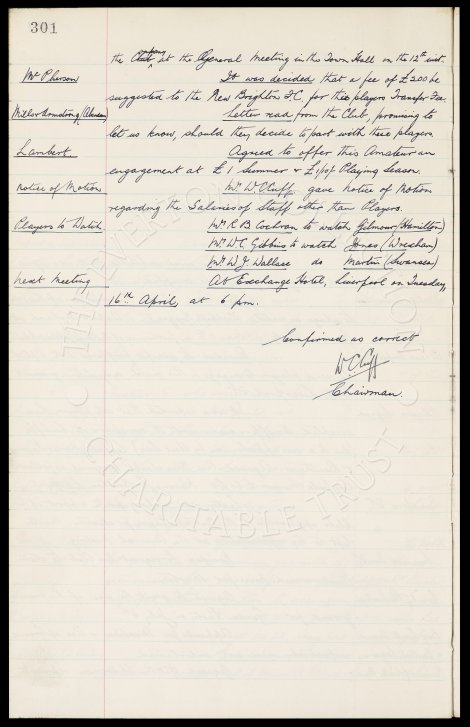 301
the Company at the General Meeting in the Town Hall on the 12th inst.
McPherson
It was decided that a fee of £200 be
suggested to the New Brighton F.C. for this players Transfer Fee
Mills or Armstrong, Aberdeen
Letter read from the Club, promising to
let us know, should they decide to part with these players
Lambert.
Agreed to offer this Amateur an
engagement at £1 Summer & £1/10/ Playing season.
notice of Motion
Mr W.C. Cuff gave notice of Motion
regarding the Salaries of Staff other than Players.
Players to Watch
Mr R B Cochran to watch Gilmour (Hamilton)
Mr W C Gibbins to watch Jones (Wrexham)
Mr W J Wallace do Martin (Swansea)
next Meeting
At Exchange Hotel, Liverpool on Tuesday,
16th April, at 6 pm.
Confirmed as correct
W C Cuff
Chairman.
THE EVERTON COLLECTION
CHARITABLE TRUST